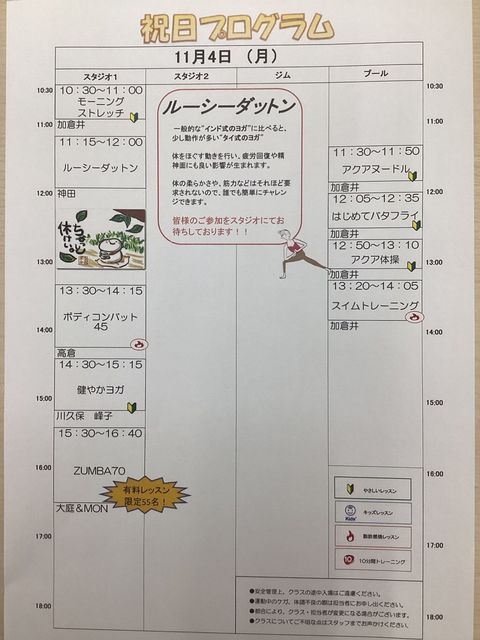 祝日プログラム
11月4日 (月)
スタジオ1
スタジオ2
ジム
プール
10:30
11:00
12:00
13:00
14:00
15:00
16:00
17:00
18:00
10:30~11:00
モーニング
ストレッチ
加倉井
11:15~12:00
ルーシーダットン
神田
13:30~14:15
ボディコンバット
45
高倉
14:30~15:15
健やかヨガ
川久保 峰子
15:30~16:40
ZUMBA70
大庭&MON
有料レッスン
限定55名!
ルーシーダットン
一般的な“インド式のヨガ”に比べると、
少し動作が多い“タイ式のヨガ”
体をほぐす動きを行い、疲労回復や精
神面にも良い影響が生まれます。
体の柔らかさや、筋力などはそれほど要
求されないので、誰でも簡単にチャレン
ジできます。
皆様のご参加をスタジオにてお
待ちしております!!
11:30~11:50
アクアヌードル
加倉井
12:05~12:35
はじめてバタフライ
加倉井
12:50~13:10
アクア体操
加倉井
13:20~14:05
スイムトレーニング
加倉井
10:30
11:00
12:00
13:00
14:00
15:00
16:00
17:00
18:00
やさしいレッスン
Kids'
キッズレッスン
脂肪燃焼レッスン
10
10分間トレーニング
●安全管理上、クラスの途中入場はご遠慮ください。
●運動中のケガ、体調不良の際は担当者にお申し出ください。
●都合により、クラス・担当者が変更になる場合がございます。
●クラスについてご不明な点はスタッフまでお声がけください。